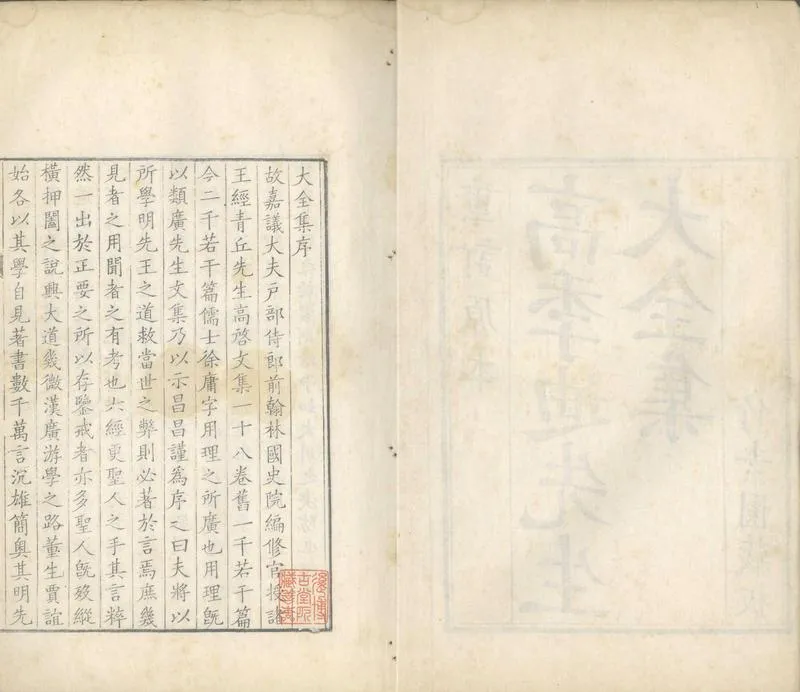 大全集序
故嘉議大夫戸部侍郎前翰林國史院編修官授諸
王經青丘先生高啓文集一十八卷舊一千若干篇
今二千若干篇儒士徐庸字用理之所廣也用理旣
以類廣先生文集乃以示昌昌謹為序之曰夫將以
所學明先王之道救當世之弊則必著於言焉庶幾
見者之用聞者之有考也六經更聖人之手其言粹
然一出於正要之所以存鑒戒者亦多聖人旣歿縱
橫押闔之說興大道幾微漢廣游學之路董生賈誼
始各以其學自見著書數千萬言沉雄簡奥其明先
大全集
高季迪先生